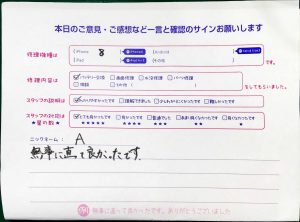 本日のご意見・ご感想など一言と確認のサインお願いします
修理機種は
iPhone 8
Android
iPad
その他
修理内容は
バッテリー交換 画面修理 水没修理 パーツ修理
をしてもらいました。
スタッフの説明は
わかりやすかったです 理解できました 少しわかりにくかったです 難しかったです
スタッフの対応は
★星の数★
とても良かったです 良かったです 普通でした
★★★★★ ★★★★ ★★★ ★★ ★
ニックネーム: A
無事に直って良かったです。
無事に直って良かったです。ありがとうございました